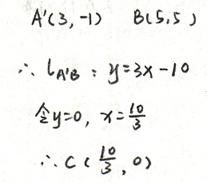 A'(3,-1) B(5,5)
∴ l_{A'B} : y=3x-10
令y=0, x=\frac{10}{3}
∴ C(\frac{10}{3}, 0)